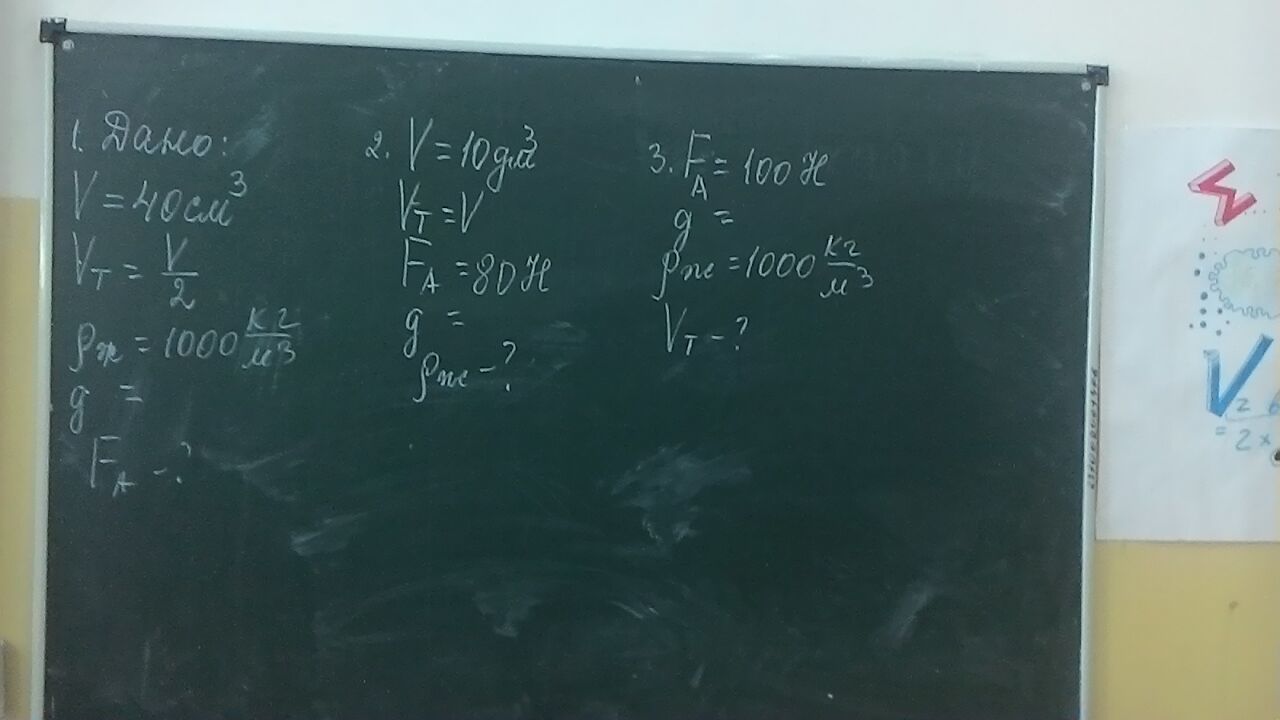 1. Дано:
V = 40 см³
Vт = V/2
ρж = 1000 кг/м³
g =
FА - ?
2. V = 10 дм³
Vт = V
FА = 80 Н
g =
ρж - ?
3. FА = 100 Н
g =
ρж = 1000 кг/м³
Vт - ?
V
2
= 2x